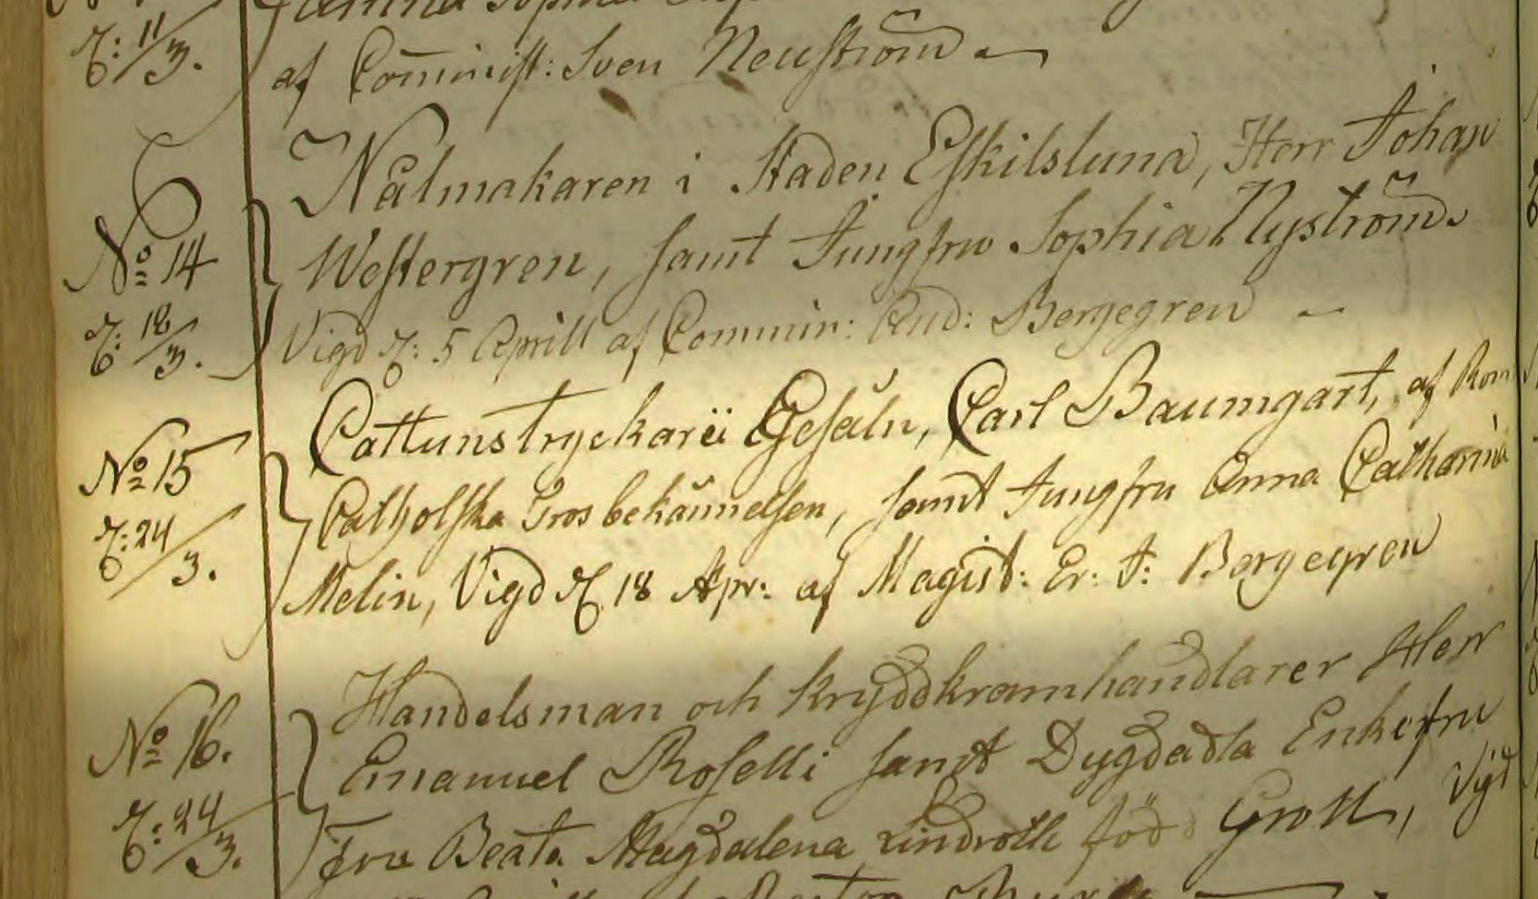 D: 11/3.
af Com̄inist: Sven Neuström
Nålmakaren i Staden Eskilstuna, Herr Johan
No 14
Westergren, samt Jungfru Sophia Nyström.
D: 18/3.
Vigd d: 5 Aprill af Commin: And: Bergegren
Cattunstryckarëi Gesäln, Carl Baumgart, af Rom
No 15
Catholska Trosbekännelsen, samt Jungfru Anna Catharina
D: 24/3.
Melin, Vigd d 18 Apr: af Magist: Er: J: Bergegren
Handelsman och Kryddkramhandlarer Herr
No 16.
Emanuel Roselli samt Dygdädla Enkefru
D: 24/3.
Fru Beata Magdalena Lindroth född Groll, Vigd